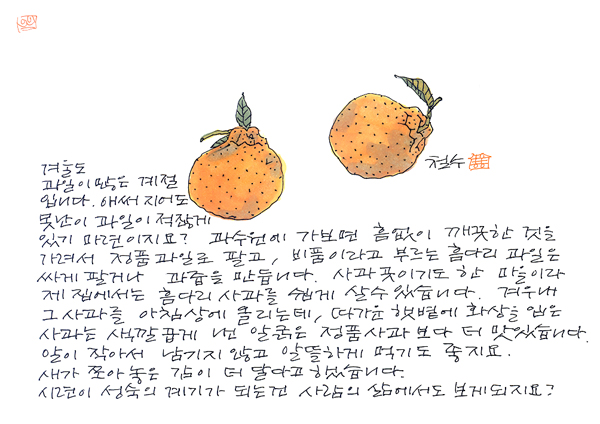 철수
겨울도
과일이 많은 계절
입니다. 애써 지어도
못난이 과일이 적잖게
있기 마련이지요? 과수원에 가보면 흠없이 깨끗한 것을
가려서 정품과일로 팔고, 비품이라고 부르는 흠다리 과일은
싸게 팔거나 과즙을 만듭니다. 사과꽃이기도 한 마을이라
제 집에서는 흠다리 사과를 쉽게 살 수 있습니다. 겨우내
그 사과를 아침상에 올리는데, 따가운 햇볕에 화상을 입은
사과는 색깔 곱게 나선 알굵은 정품사과보다 더 맛있습니다.
알이 작아서 남기지 않고 알뜰하게 먹기도 좋지요.
새가 쪼아 놓은 감이 더 달다고 했습니다.
시련이 성숙의 계기가 되는 건 사람의 삶에서도 보게 되지요?